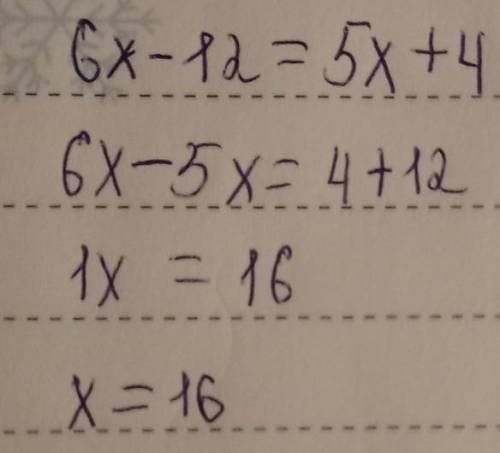 6x-12=5x+4
6x-5x=4+12
1x = 16
x=16